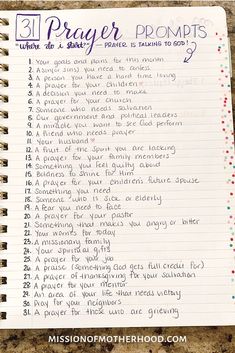 31 Prayer PROMPTS
"where do i start" - PRAYER IS TALKING TO GOD!
1. Your goals and plans for this month
2. A sin (or sins) you need to confess
3. A person you have a hard time loving
4. A prayer for your children
5. A decision you need to make
6. A prayer for your church
7. Someone who needs salvation
8. Our government and political leaders
9. A miracle you want to see God perform
10. A friend who needs prayer
11. Your husband
12. A fruit of the spirit you are lacking
13. A prayer for your family members
14. Something you feel guilty about
15. Boldness to Shine for Him
16. A prayer for your children's future spouse
17. Something you need
18. Someone who is sick or elderly
19. A fear you need to face
20. A prayer for your pastor
21. Something that makes you angry or bitter
22. Your worries for today
23. A missionary family
24. Your spiritual gifts
25. A prayer for your job
26. A praise (something God gets full credit for)
27. A prayer of thanksgiving for your salvation
28. A prayer for your mentor
29. An area of your life that needs victory
30. Pray for your neighbors
31. A prayer for those who are grieving
MISSIONOFMOTHERHOOD.COM